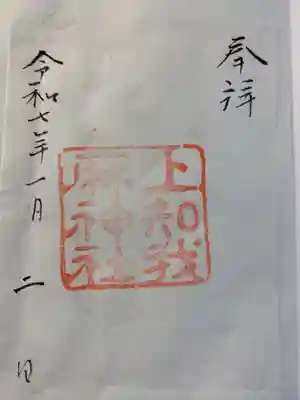 奉拝
上知我
麻神社
令和七年一月二日